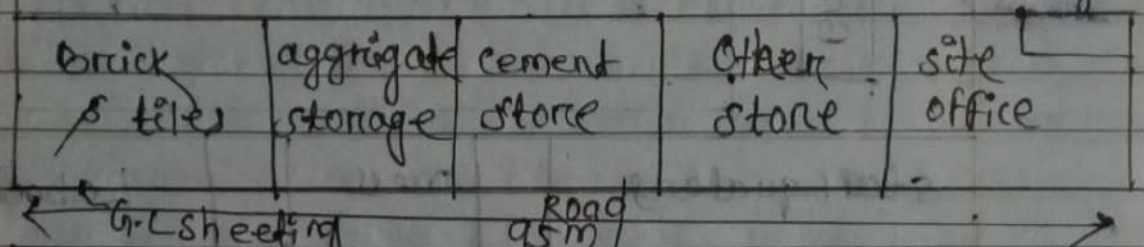 Brick
& tiles
aggrigate
storage
cement
store
Other
store
site
office
G.I sheeting
Road
95m